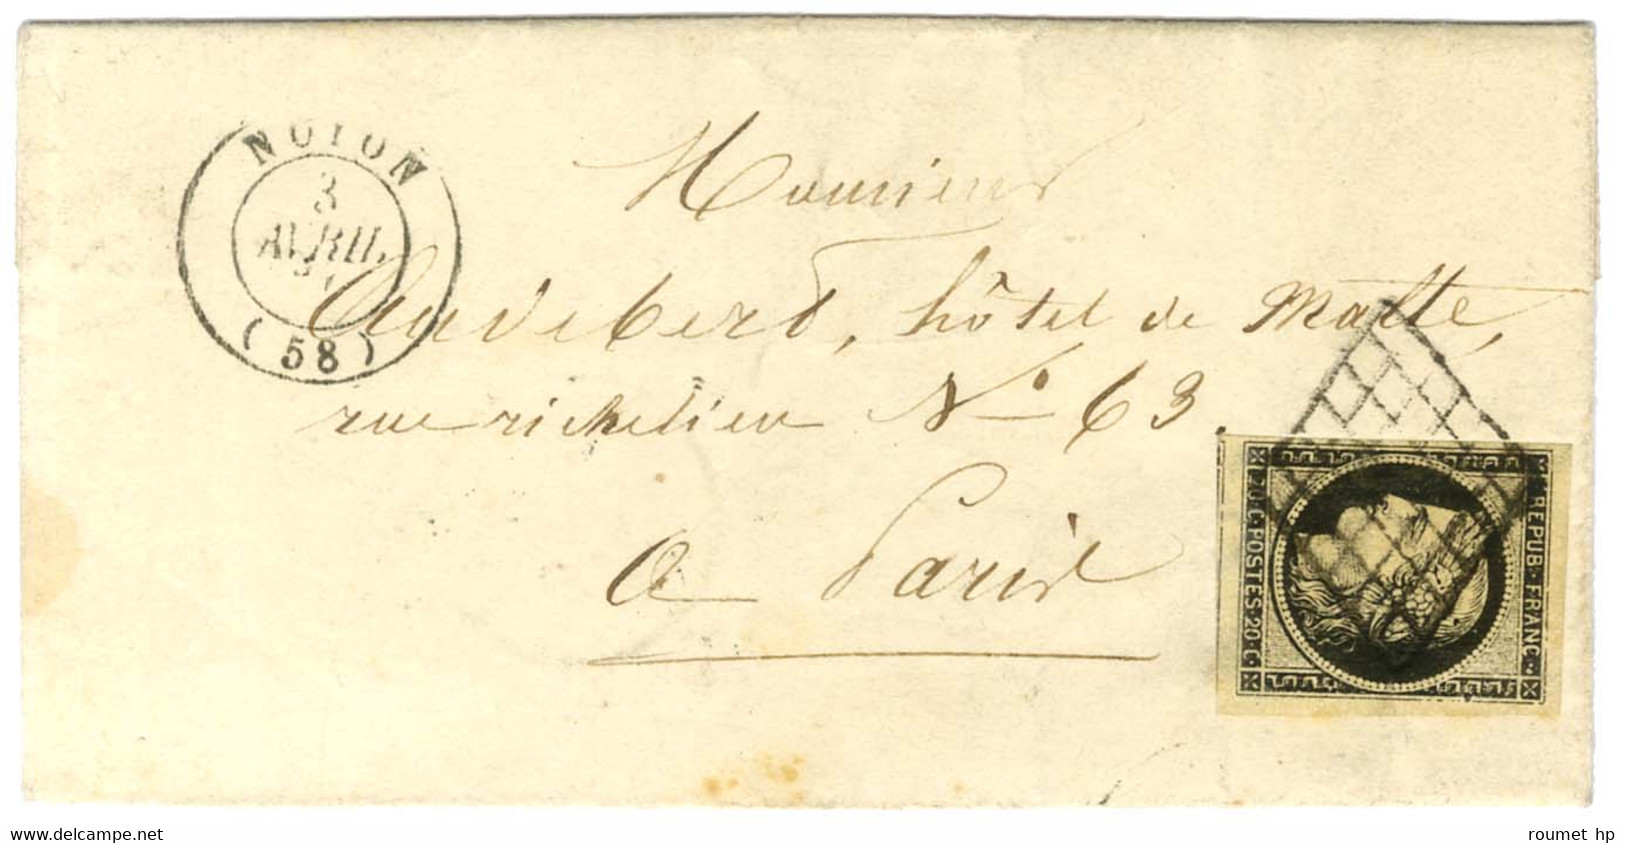 NOYON
3
AVRIL
(58)
Monsieur
Audebert, hôtel de Malte,
rue richelieu N° 63.
a Paris
20·C·POSTES·20·C·
REPUB·FRANC·
www.delcampe.net
roumet hp